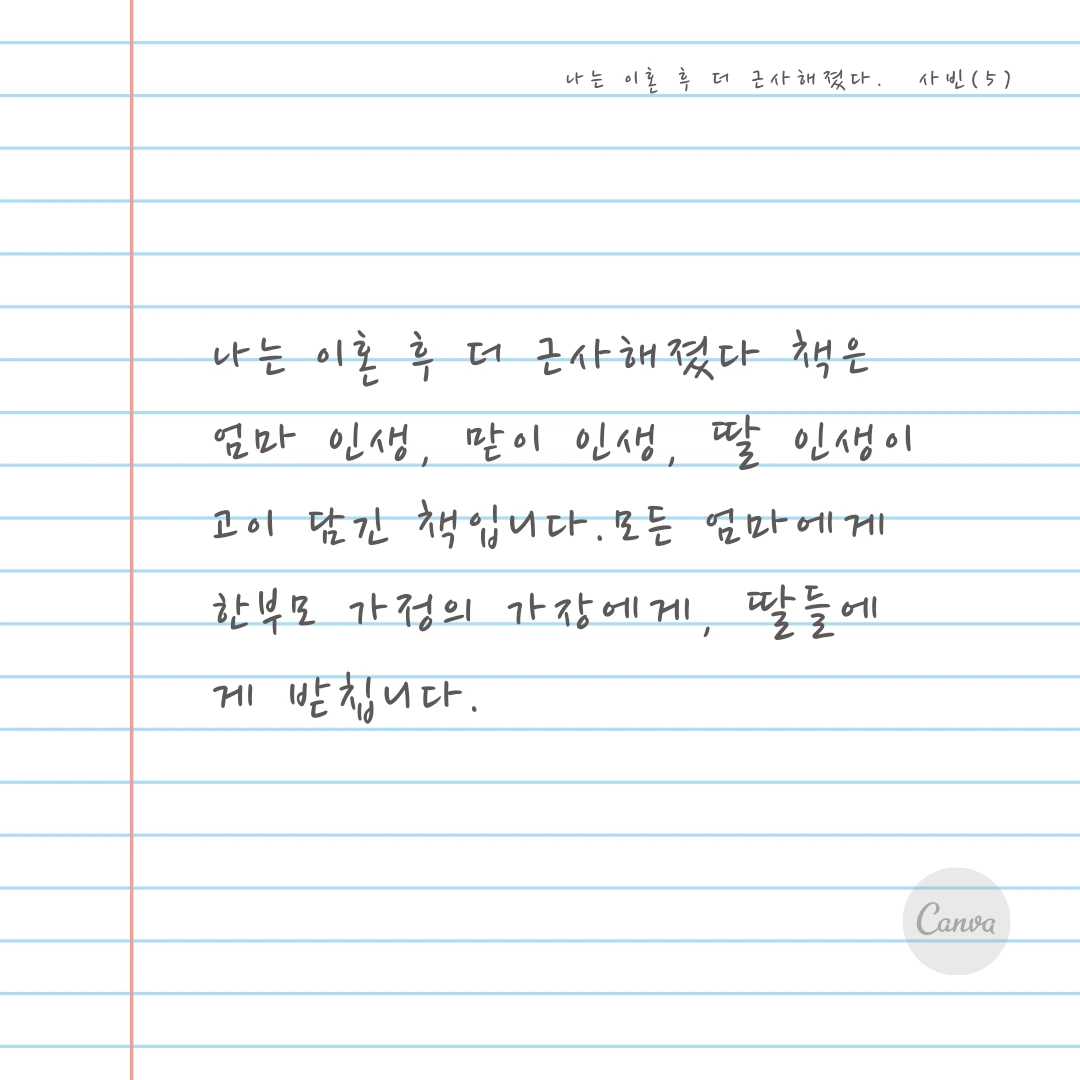 나는 이혼 후 더 근사해졌다. 사빈(5)
나는 이혼 후 더 근사해졌다 책은
엄마 인생, 맏이 인생, 딸 인생이
고이 담긴 책입니다.모든 엄마에게
한부모 가정의 가장에게, 딸들에
게 받칩니다.
Canva